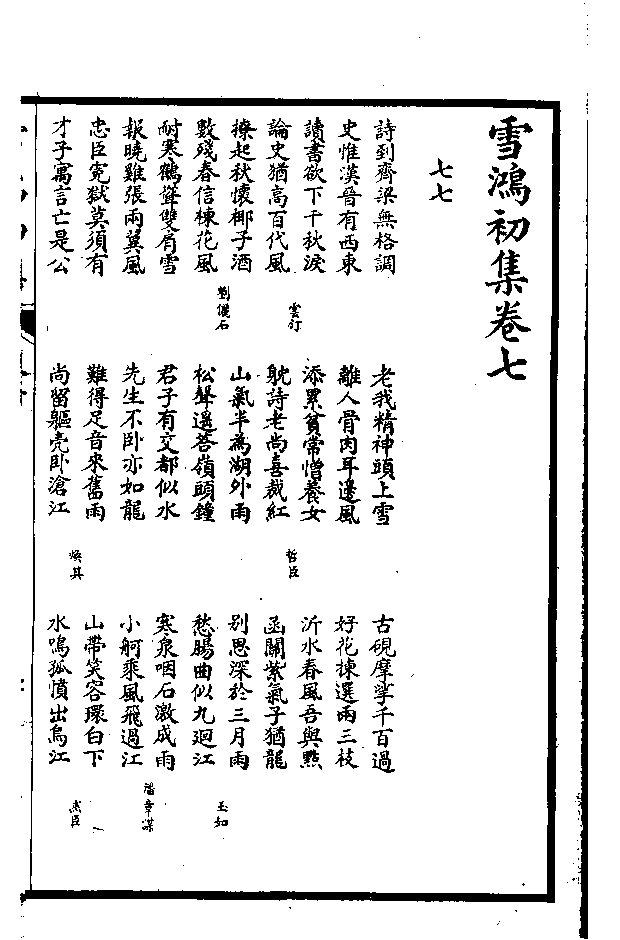 雪鴻初集卷七
七七
詩到齊梁無格調
史惟漢晉有西東
讀書欲下千秋淚
論史猶高百代風
雲汀
撩起秋懷椰子酒
數殘春信楝花風
劉儷石
耐寒鶴聳雙肩雪
報曉雞張兩翼風
忠臣冤獄莫須有
才子寓言亡是公
老我精神頭上雪
離人骨肉耳邊風
添累貧常憎養女
耽詩老尚喜裁紅
哲臣
山氣半為湖外雨
松聲遙答嶺頭鐘
君子有文都似水
先生不臥亦如龍
難得足音來舊雨
尚留軀殼臥滄江
煥其
古硯摩挲千百過
好花揀選兩三枝
沂水春風吾與點
函關紫氣子猶龍
別思深於三月雨
愁腸曲似九迴江
玉如
寒泉咽石激成雨
小舸乘風飛過江
潘章謀
山帶笑容環白下
水鳴孤憤出烏江
杰臣